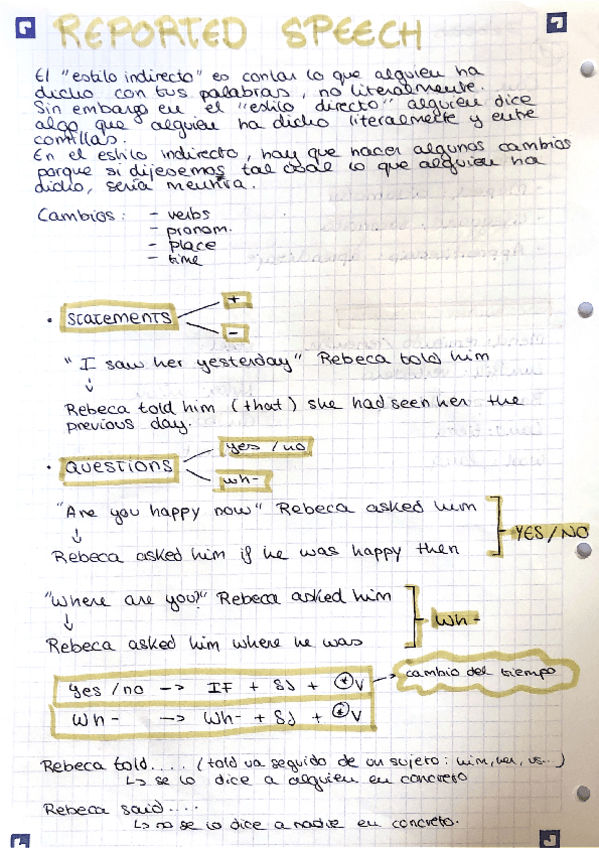 REPORTED SPEECH
El "estilo indirecto" es contar lo que alguien ha
dicho con tus palabras, no literalmente.
Sin embargo en el "estilo directo" alguien dice
algo que alguien ha dicho literalmente y entre
comillas.
En el estilo indirecto, hay que hacer algunos cambios
porque si dijesemos tal cual lo que alguien ha
dicho, sería mentira.
Cambios: - verbs
- pronom.
- place
- time
• Statements
+
-
"I saw her yesterday" Rebeca told him
↓
Rebeca told him (that) she had seen her the
previous day.
• Questions
yes/no
wh-
"Are you happy now" Rebeca asked him
↓
Rebeca asked him if he was happy then
YES/NO
"Where are you?" Rebeca asked him
↓
Rebeca asked him where he was
Wh-
Yes/no -> IF + SJ + * V
cambio del tiempo
Wh- -> Wh- + SJ + * V
Rebeca told.... (told va seguido de un sujeto: him, her, us...)
↳ se lo dice a alguien en concreto
Rebeca said....
↳ no se lo dice a nadie en concreto.